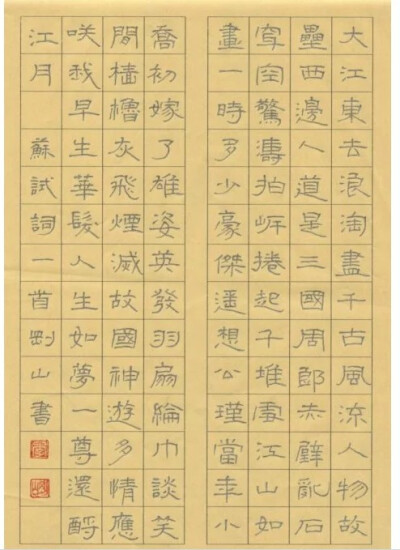 大江東去浪淘盡千古風流人物故
壘西邊人道是三國周郎赤壁亂石
穿空驚濤拍岸捲起千堆雪江山如
畫一時多少豪傑遥想公瑾當年小
喬初嫁了雄姿英發羽扇綸巾談笑
間檣櫓灰飛煙滅故國神遊多情應
咲我早生華髮人生如夢一尊還酹
江月 蘇試詞一首剛山書